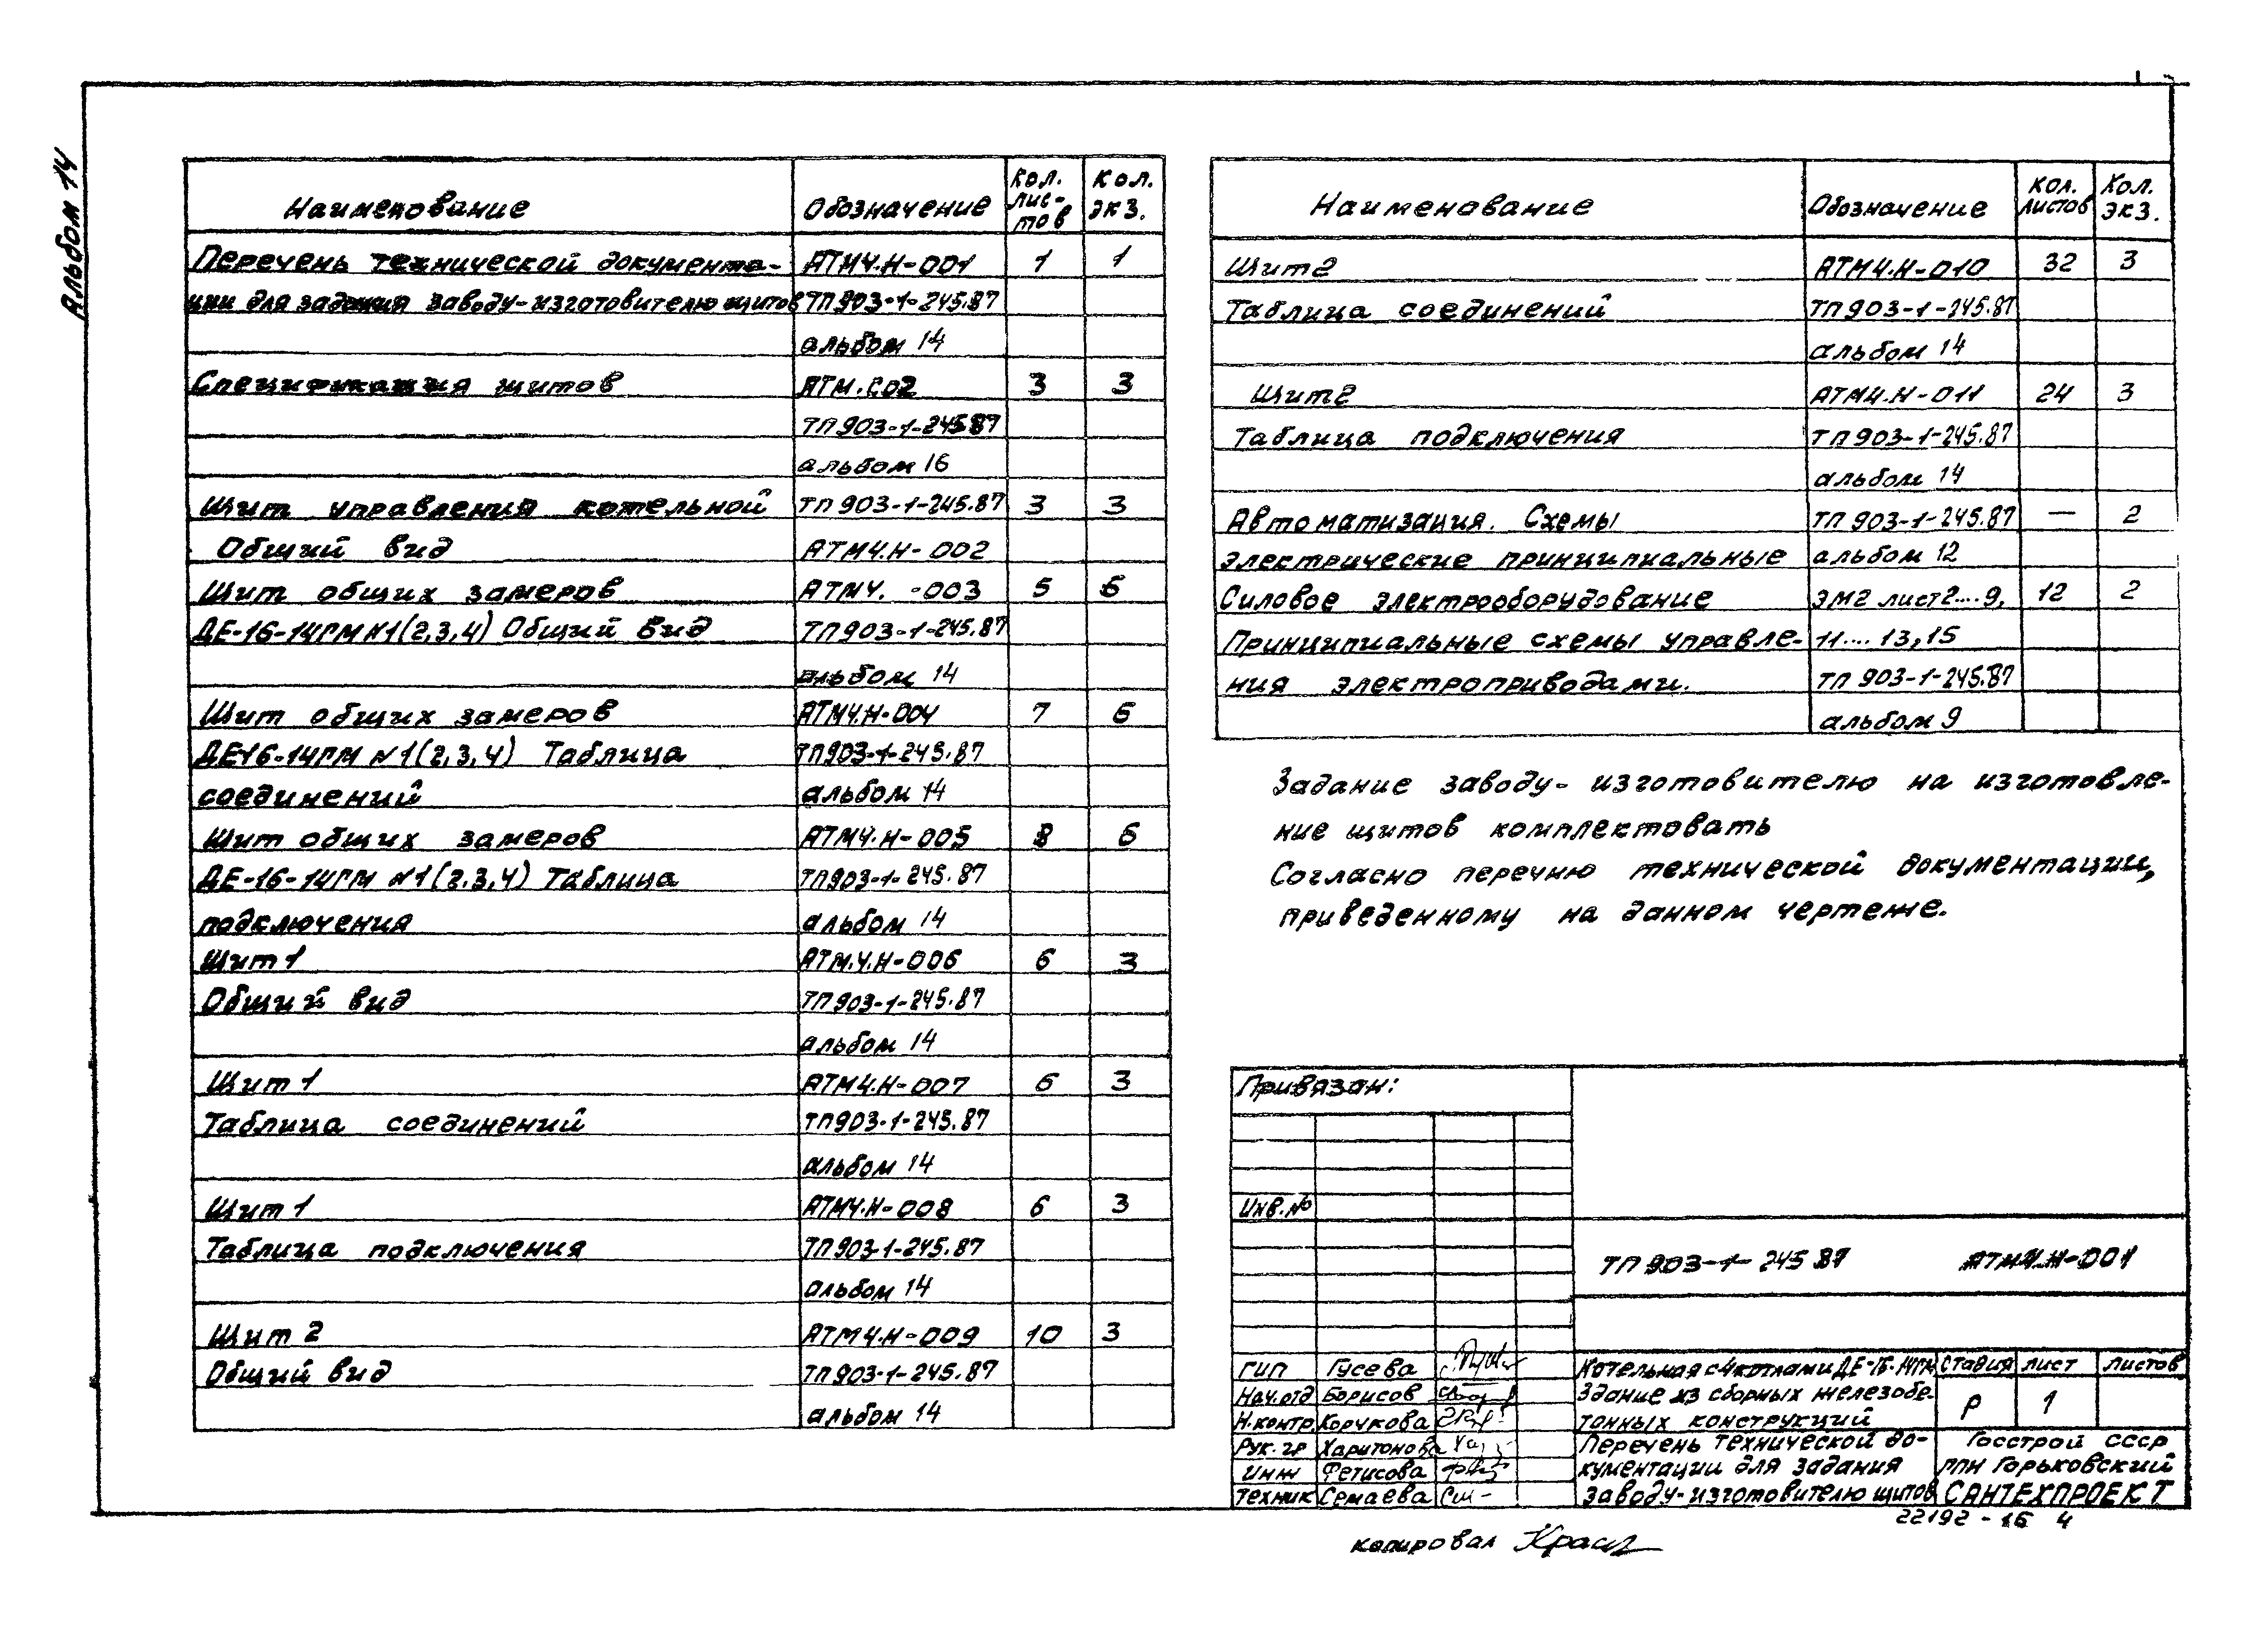 Альбом 14
Наименование Обозначение Кол. лис-тов Кол. экз.
Перечень технической документа- АТМ4.Н-001 1 1
ции для задания заводу-изготовителю щитов ТП903-1-245.87
альбом 14
Спецификация щитов АТМ.С02 3 3
ТП903-1-245.87
альбом 16
Щит управления котельной ТП903-1-245.87 3 3
Общий вид АТМ4.Н-002
Щит общих замеров АТМ4. -003 5 6
ДЕ-16-14ГМ N1(2,3,4) Общий вид ТП903-1-245.87
альбом 14
Щит общих замеров АТМ4.Н-004 7 6
ДЕ16-14ГМ N1(2,3,4) Таблица ТП903-1-245.87
соединений альбом 14
Щит общих замеров АТМ4.Н-005 8 6
ДЕ-16-14ГМ N1(2,3,4) Таблица ТП903-1-245.87
подключения альбом 14
Щит 1 АТМ.4.Н-006 6 3
Общий вид ТП903-1-245.87
альбом 14
Щит 1 АТМ4.Н-007 6 3
Таблица соединений ТП903-1-245.87
альбом 14
Щит 1 АТМ4.Н-008 6 3
Таблица подключения ТП903-1-245.87
альбом 14
Щит 2 АТМ4.Н-009 10 3
Общий вид ТП903-1-245.87
альбом 14
Наименование Обозначение Кол. листов Кол. экз.
Щит 2 АТМ4.Н-010 32 3
Таблица соединений ТП903-1-245.87
альбом 14
Щит 2 АТМ4.Н-011 24 3
Таблица подключения ТП903-1-245.87
альбом 14
Автоматизация. Схемы ТП903-1-245.87 — 2
электрические принципиальные альбом 12
Силовое электрооборудование ЭМ2 лист 2....9, 12 2
Принципиальные схемы управле- 11.... 13,15
ния электроприводами. ТП 903-1-245.87
альбом 9
Задание заводу-изготовителю на изготовле-
ние щитов комплектовать
Согласно перечню технической документации,
приведенному на данном чертеже.
Привязан:
Инв.№
ТП 903-1-245 87 АТМ4.Н-001
ГИП Гусева
Нач.отд Борисов
Н.контр. Корчкова
Рук.гр Харитонова
Инж Фетисова
Техник Семаева
Котельная с 4 котлами ДЕ-16-14ГМ
Здание из сборных железобе-
тонных конструкций
Стадия лист листов
Р 1
Перечень технической до-
кументации для задания
заводу-изготовителю щитов
Госстрой СССР
ГПИ Горьковский
САНТЕХПРОЕКТ
22192-16 4
копировал